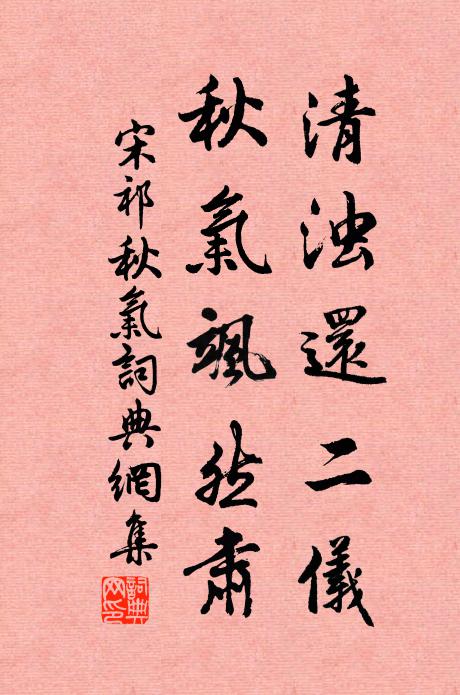 清浊還二儀
秋氣颯然肅
宋祁秋氣詞典網集
詞典
网印